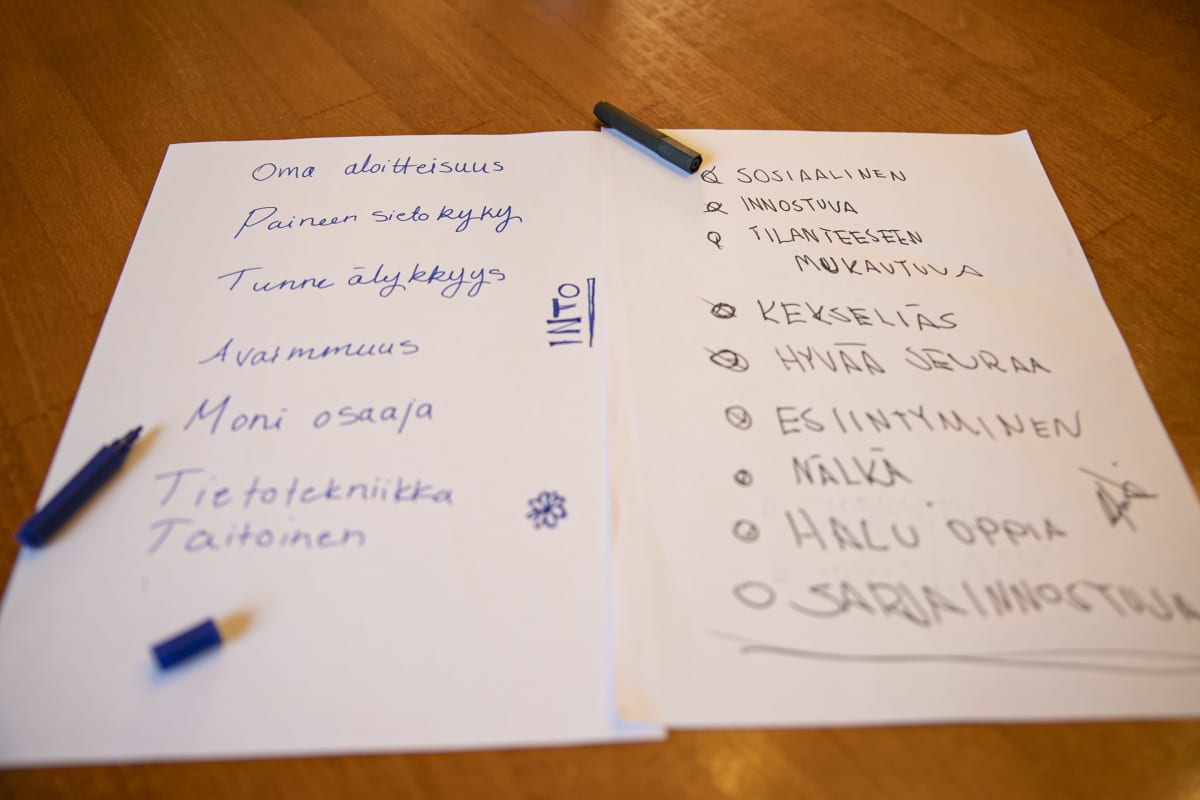 Oma aloitteisuus
Paineen sietokyky
Tunne älykkyys
Avaimmuus
Moni osaaja
Tietotekniikka
Taitoinen
INTO
SOSIAALINEN
INNOSTUVA
TILANTEESEEN
MUKAUTUVA
KEKSELIÄS
HYVÄÄ SEURAA
ESIINTYMINEN
NÄLKÄ
HALU OPPIA
SARJAINNOSTUJA